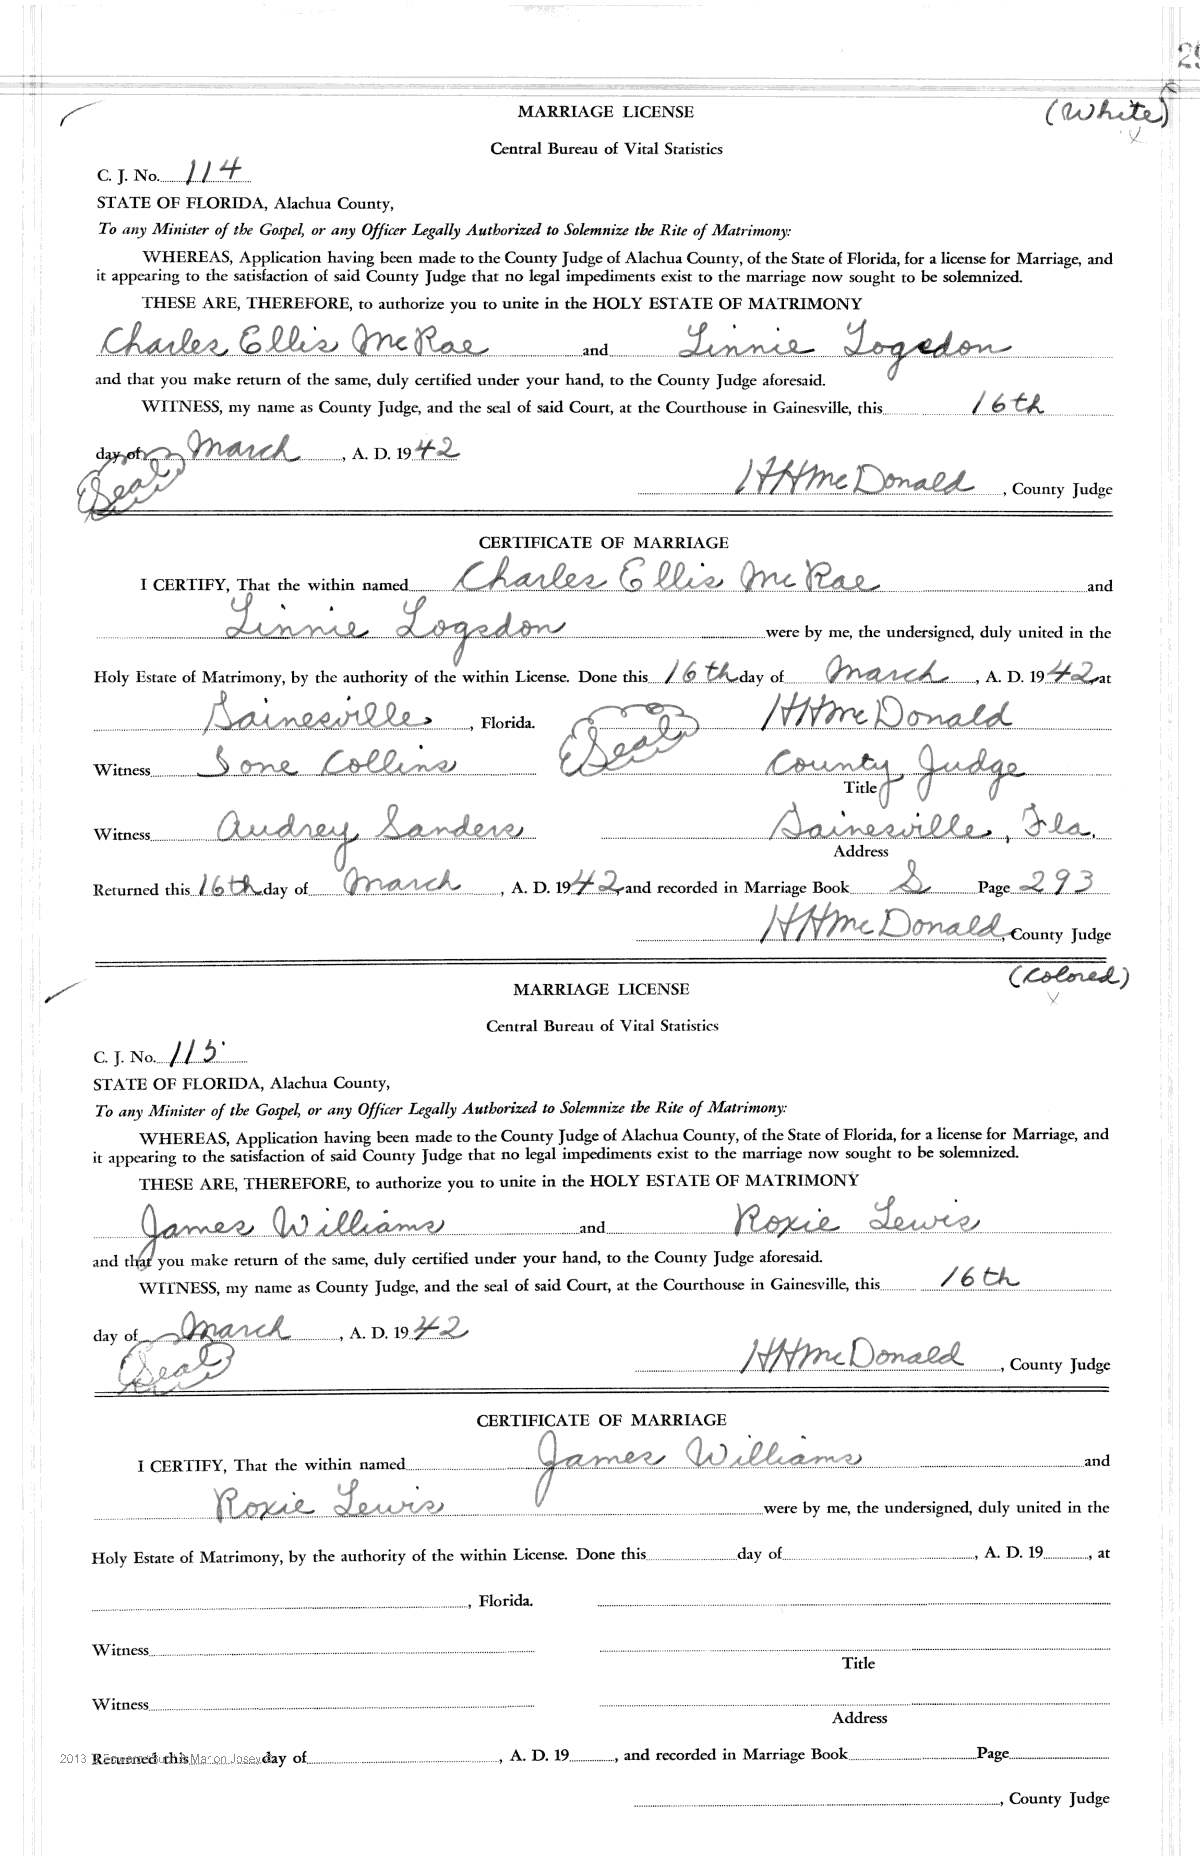 29
MARRIAGE LICENSE
(White)
x
Central Bureau of Vital Statistics
C. J. No. 114
STATE OF FLORIDA, Alachua County,
To any Minister of the Gospel, or any Officer Legally Authorized to Solemnize the Rite of Matrimony:
WHEREAS, Application having been made to the County Judge of Alachua County, of the State of Florida, for a license for Marriage, and
it appearing to the satisfaction of said County Judge that no legal impediments exist to the marriage now sought to be solemnized.
THESE ARE, THEREFORE, to authorize you to unite in the HOLY ESTATE OF MATRIMONY
Charles Ellis McRae and Linnie Logsdon
and that you make return of the same, duly certified under your hand, to the County Judge aforesaid.
WITNESS, my name as County Judge, and the seal of said Court, at the Courthouse in Gainesville, this 16th
day of March, A. D. 1942
(Seal)
HHMcDonald, County Judge
CERTIFICATE OF MARRIAGE
I CERTIFY, That the within named Charles Ellis McRae and
Linnie Logsdon were by me, the undersigned, duly united in the
Holy Estate of Matrimony, by the authority of the within License. Done this 16th day of March, A. D. 1942, at
Gainesville, Florida. (Seal) HHMcDonald
Witness Ione Collins County Judge
Title
Witness Audrey Sanders Gainesville, Fla.
Address
Returned this 16th day of March, A. D. 1942, and recorded in Marriage Book S Page 293
HHMcDonald, County Judge
(Colored)
x
MARRIAGE LICENSE
Central Bureau of Vital Statistics
C. J. No. 115
STATE OF FLORIDA, Alachua County,
To any Minister of the Gospel, or any Officer Legally Authorized to Solemnize the Rite of Matrimony:
WHEREAS, Application having been made to the County Judge of Alachua County, of the State of Florida, for a license for Marriage, and
it appearing to the satisfaction of said County Judge that no legal impediments exist to the marriage now sought to be solemnized.
THESE ARE, THEREFORE, to authorize you to unite in the HOLY ESTATE OF MATRIMONY
James Williams and Roxie Lewis
and that you make return of the same, duly certified under your hand, to the County Judge aforesaid.
WITNESS, my name as County Judge, and the seal of said Court, at the Courthouse in Gainesville, this 16th
day of March, A. D. 1942
(Seal)
HHMcDonald, County Judge
CERTIFICATE OF MARRIAGE
I CERTIFY, That the within named James Williams and
Roxie Lewis were by me, the undersigned, duly united in the
Holy Estate of Matrimony, by the authority of the within License. Done this day of , A. D. 19 , at
, Florida.
Witness
Title
Witness
Address
2013 Marion Josey
Returned this day of , A. D. 19 , and recorded in Marriage Book Page
, County Judge